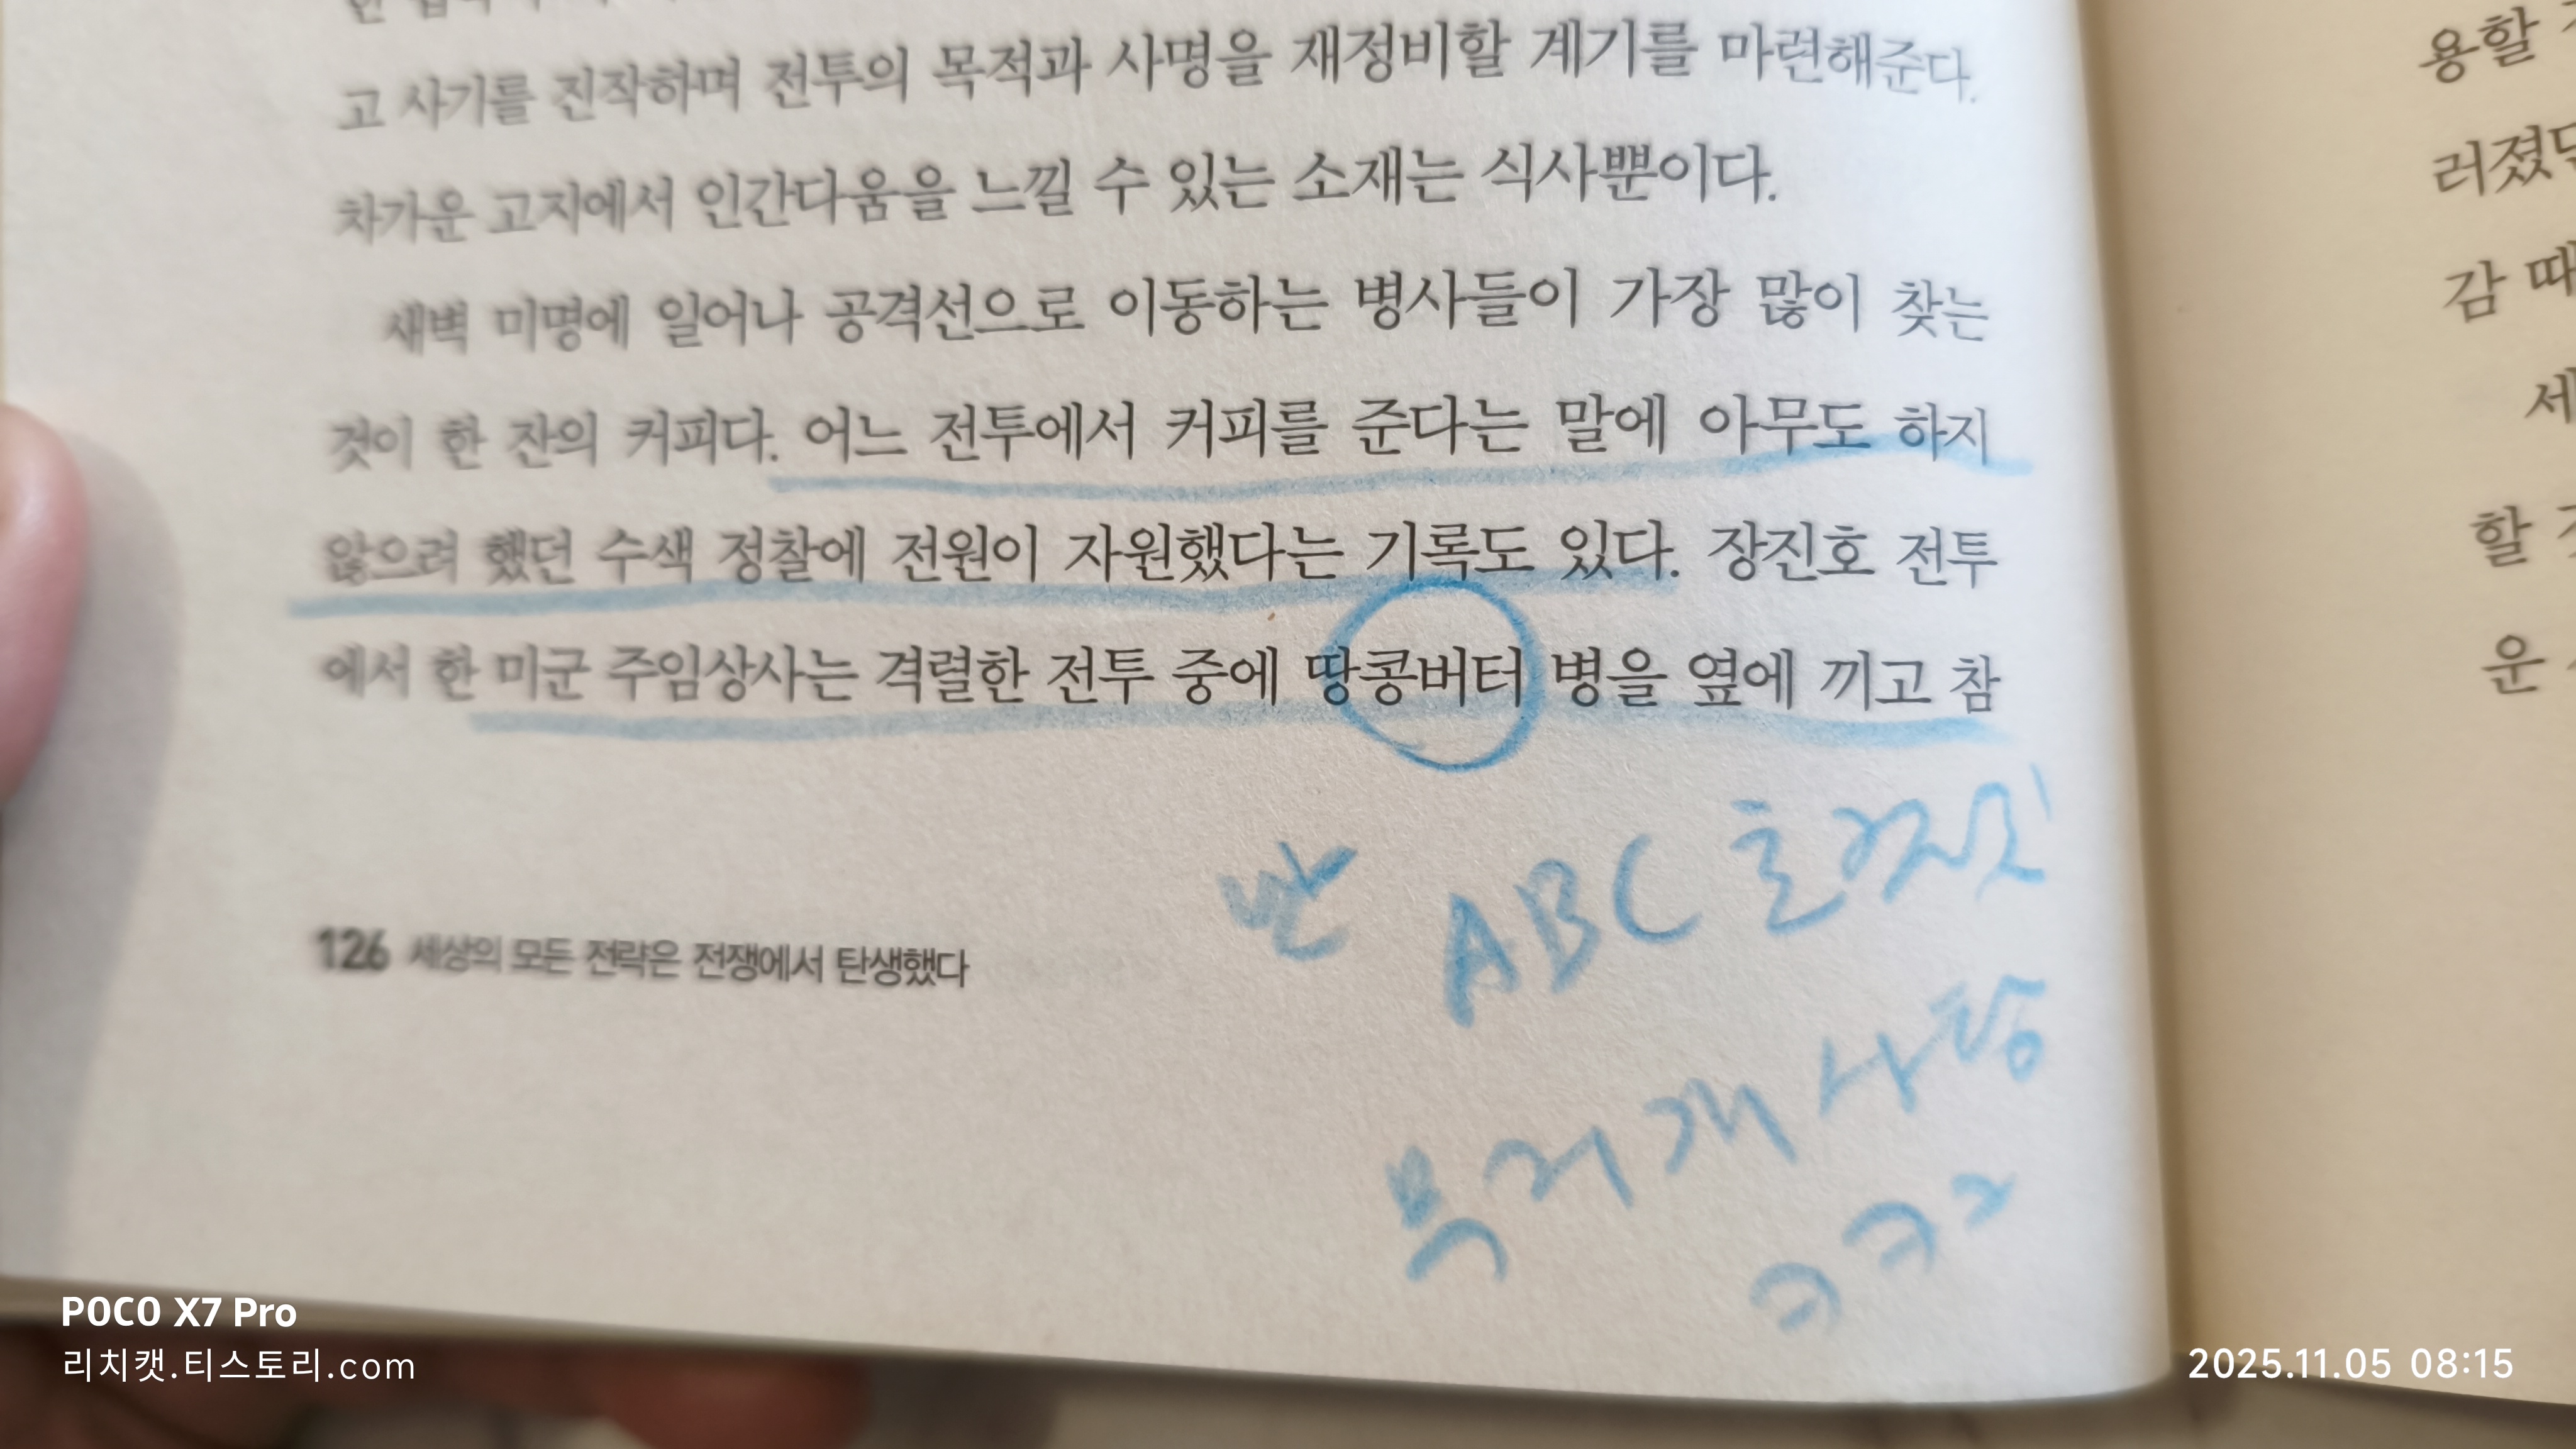 고 사기를 진작하며 전투의 목적과 사명을 재정비할 계기를 마련해준다.
차가운 고지에서 인간다움을 느낄 수 있는 소재는 식사뿐이다.
새벽 미명에 일어나 공격선으로 이동하는 병사들이 가장 많이 찾는
것이 한 잔의 커피다. 어느 전투에서 커피를 준다는 말에 아무도 하지
않으려 했던 수색 정찰에 전원이 자원했다는 기록도 있다. 장진호 전투
에서 한 미군 주임상사는 격렬한 전투 중에 땅콩버터 병을 옆에 끼고 참
ABC
사탕
ㅋㅋㅋ
126 세상의 모든 전략은 전쟁에서 탄생했다
용할
러졌
감 때
세
할
운
POCO X7 Pro
리치캣.티스토리.com
2025.11.05 08:15